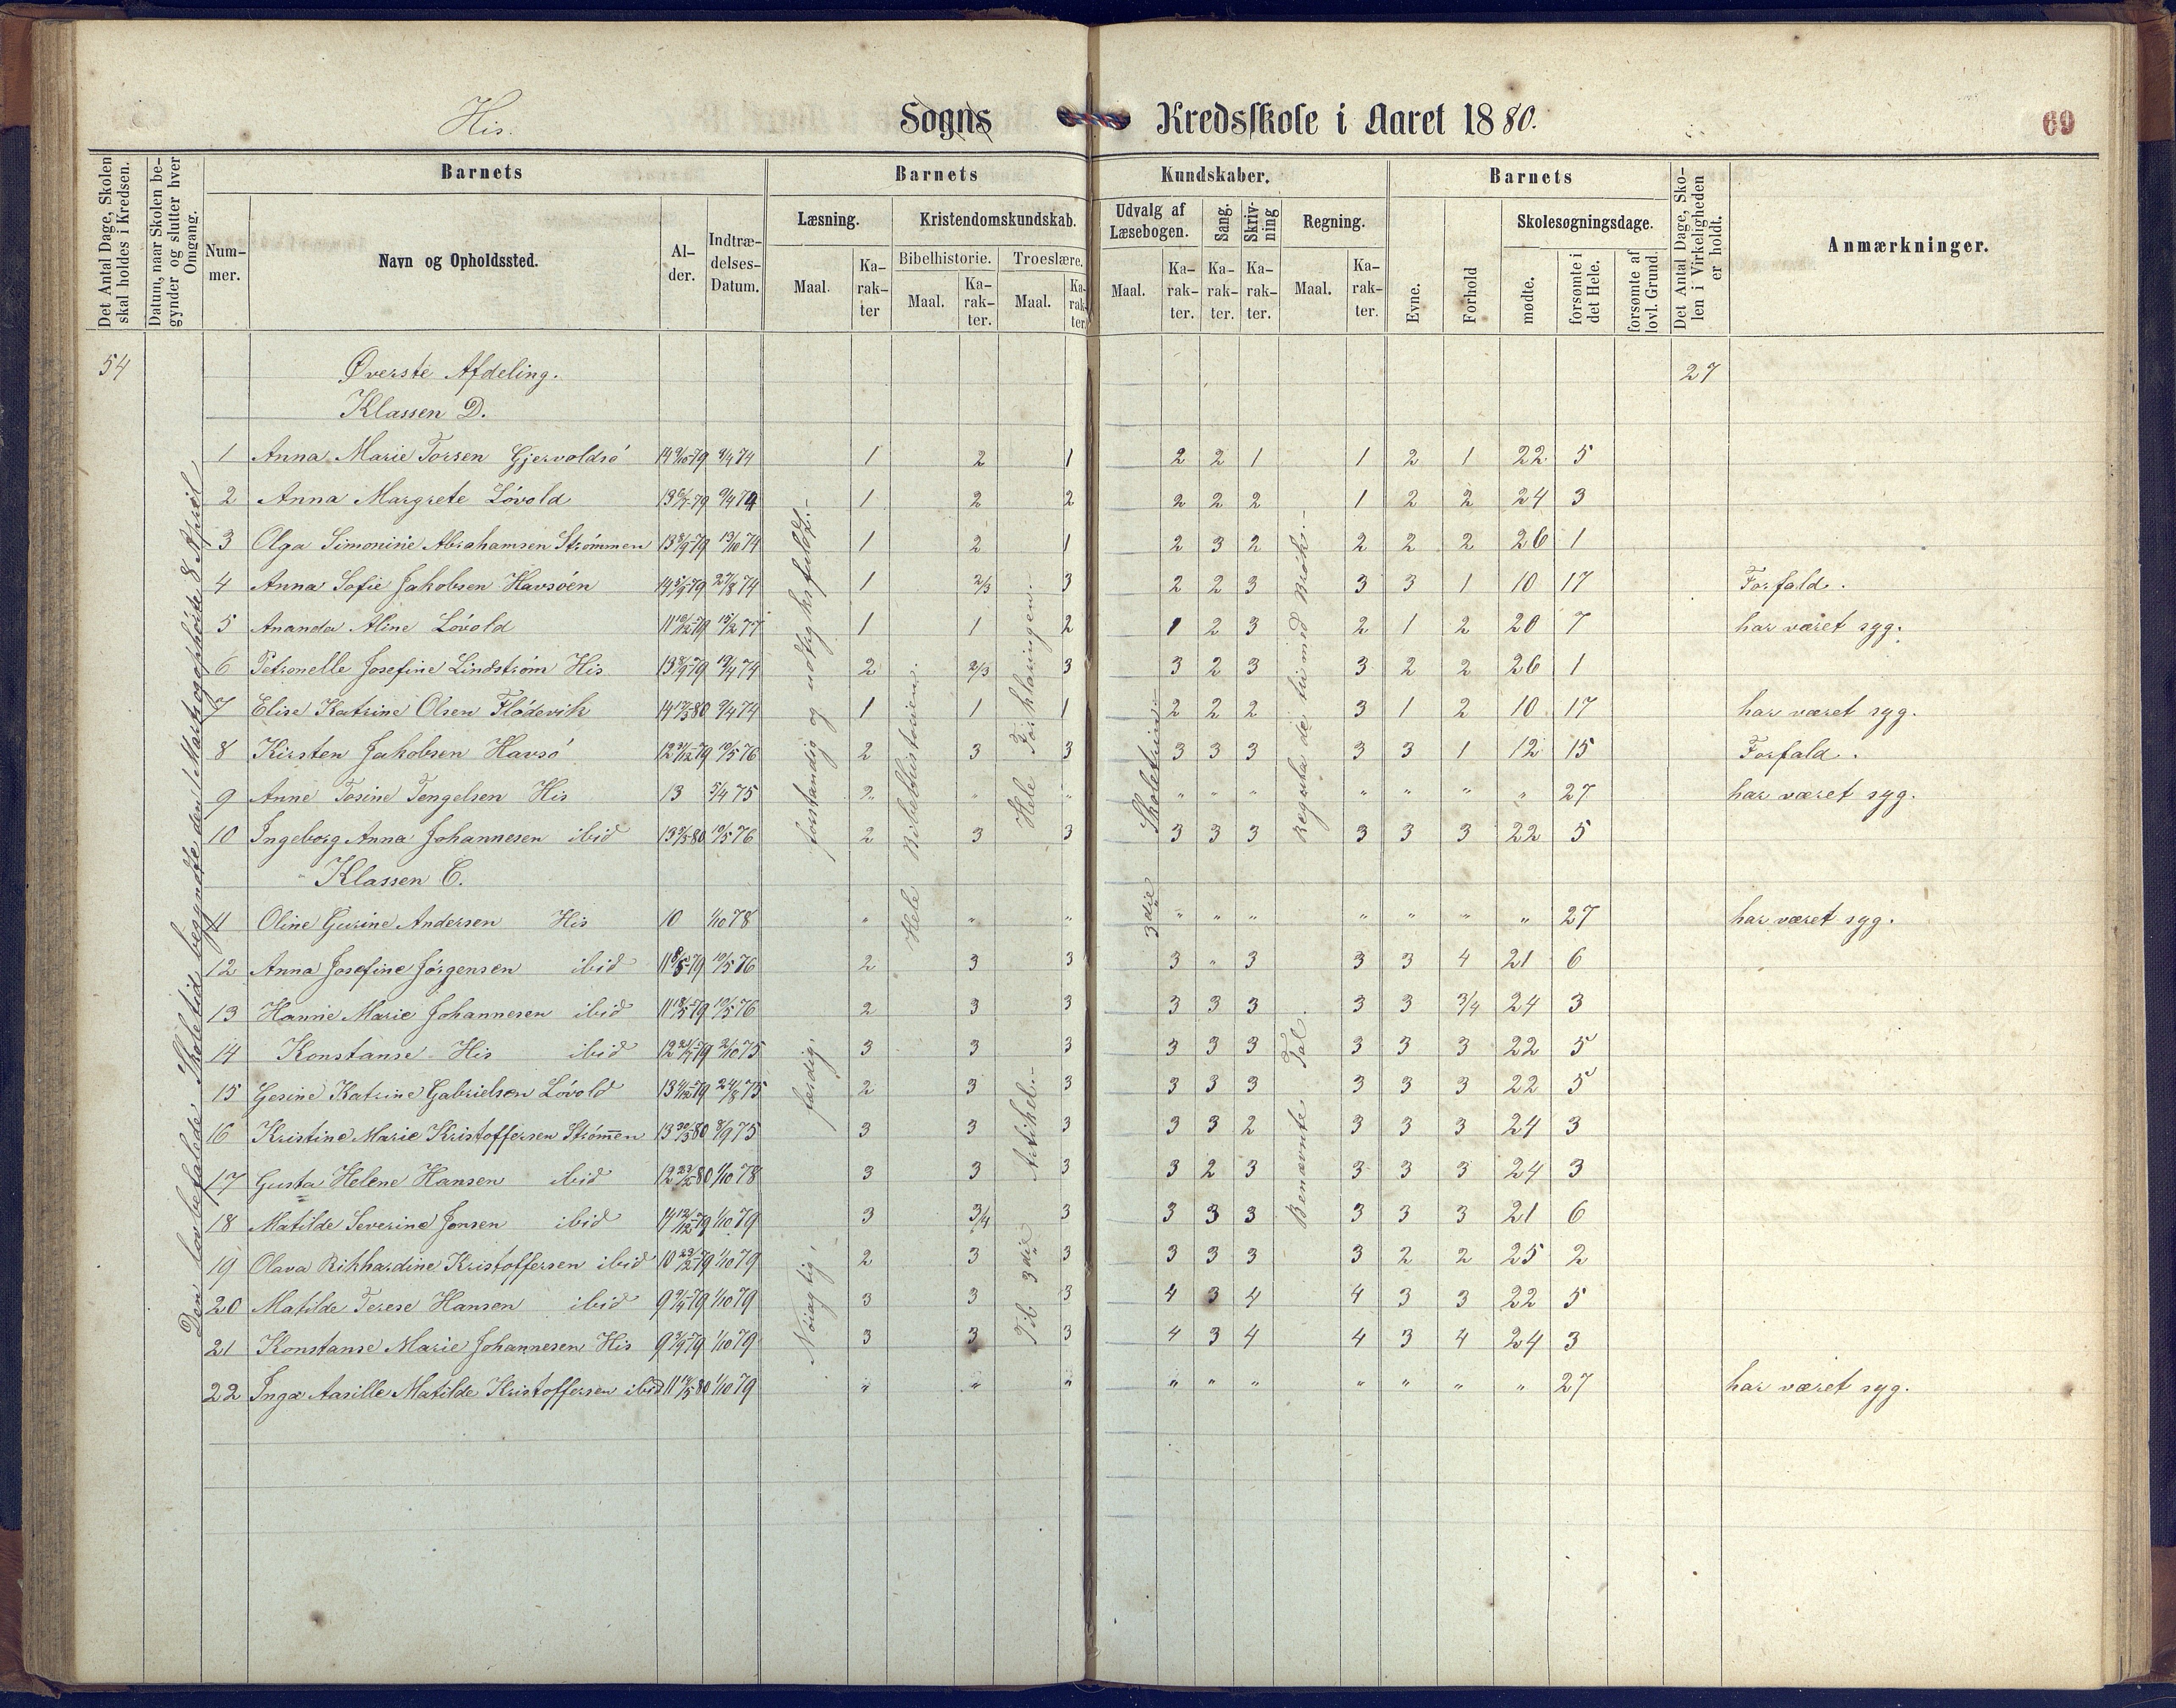 His. Sogns Kredsskole i Aaret 1880. 69
Det Antal Dage, Skolen skal holdes i Kredsen.
Datum, naar Skolen begynder og slutter hver Omgang.
Barnets Barnets Kundskaber. Barnets
Nummer. Navn og Opholdssted. Alder. Indtrædelses-Datum.
Læsning. Kristendomskundskab. Udvalg af Læsebogen. Sang. Skrivning Regning. Evne. Forhold Skolesøgningsdage.
Bibelhistorie. Troeslære.
Maal. Karakter Maal. Karakter. Maal. Karakter. Maal. Karakter. Karakter. Karakter. Maal. Karakter. mødte. forsømte i det Hele. forsømte af lovl. Grund.
Det Antal Dage, Skolen i Virkeligheden er holdt.
Anmærkninger.
54 Øverste Afdeling. 27
Klassen D.
1 Anna Marie Torsen Gjervoldsø 1 2 1 2 2 1 1 2 1 22 5
2 Anna Margrete Løvold 13 6/7-79 9/4 74 1 2 2 2 2 2 1 2 2 24 3
3 Olga Simonine Abrahamsen Strømmen 13 8/9-79 13/10 74 1 2 1 2 3 2 2 2 2 26 1
4 Anna Sofie Jakobsen Havsøen 27/8 74 1 2/3 3 2 2 3 3 3 1 10 17 Forfald.
5 Ananda Aline Løvold 15/2 77 1 1 2 1 2 3 2 1 2 20 7 har været syg.
6 Petronelle Josefine Lindstrøm His 2 2/3 3 3 2 3 3 2 2 26 1
7 Elise Katrine Olsen Flødevik 9/4 74 1 1 1 2 2 2 3 1 2 10 17 har været syg.
8 Kirsten Jakobsen Havsø 10/5 76 2 3 3 3 3 3 3 3 1 12 15 Forfald.
9 Anne Tosine Tengelsen His 13 5/4 75 2 " " " " " " " " " 27 har været syg.
10 Ingeborg Anna Johannesen ibid 10/5 76 2 3 3 3 3 3 3 3 3 22 5
Klassen C.
11 Oline Gurine Andersen His 10 1/10 78 " " " " " " " " " " 27 har været syg.
12 Anna Josefine Jørgensen ibid 10/5 76 2 3 3 3 " 3 3 3 4 21 6
13 Hanne Marie Johannesen ibid 11 18/5-79 10/5 76 2 3 3 3 3 3 3 3 3/4 24 3
14 Konstanse His ibid 2/10 75 3 3 3 3 3 3 3 3 3 22 5
15 Gesine Katrine Gabrielsen Løvold 24/8 75 2 3 3 3 3 3 3 3 3 22 5
16 Kristine Marie Kristoffersen Strøm̄en 8/9 75 3 3 3 3 3 2 3 3 3 24 3
17 Gusta Helene Hansen ibid 1/10 78 3 3 3 3 2 3 3 3 3 24 3
18 Matilde Severine Jensen ibid 1/10 79 3 3/4 3 3 3 3 3 3 3 21 6
19 Olava Rikhardine Kristoffersen ibid 1/10 79 2 3 3 3 3 3 3 2 2 25 2
20 Matilde Terese Hansen ibid 1/10 79 3 3 3 4 3 4 4 3 3 22 5
21 Konstanse Marie Johannesen His 1/10 79 3 3 3 4 3 4 4 3 4 24 3
22 Inga Aasille Matilde Kristoffersen ibid 1/10 79 " " " " " " " " " " 27 har været syg.
Den lovbefalede Skoletid begyndte den 1 Marts og ophørte 8 April
forstandig og udtryksfuldt.-
færdig.
Nøiagtig,
Hele Bibelhistorien.
Hele Forklaringen.
Til 3die Artikel.-
3die Skoletrin.-
Reguladetri med Brøk.-
Benævnte Tal.